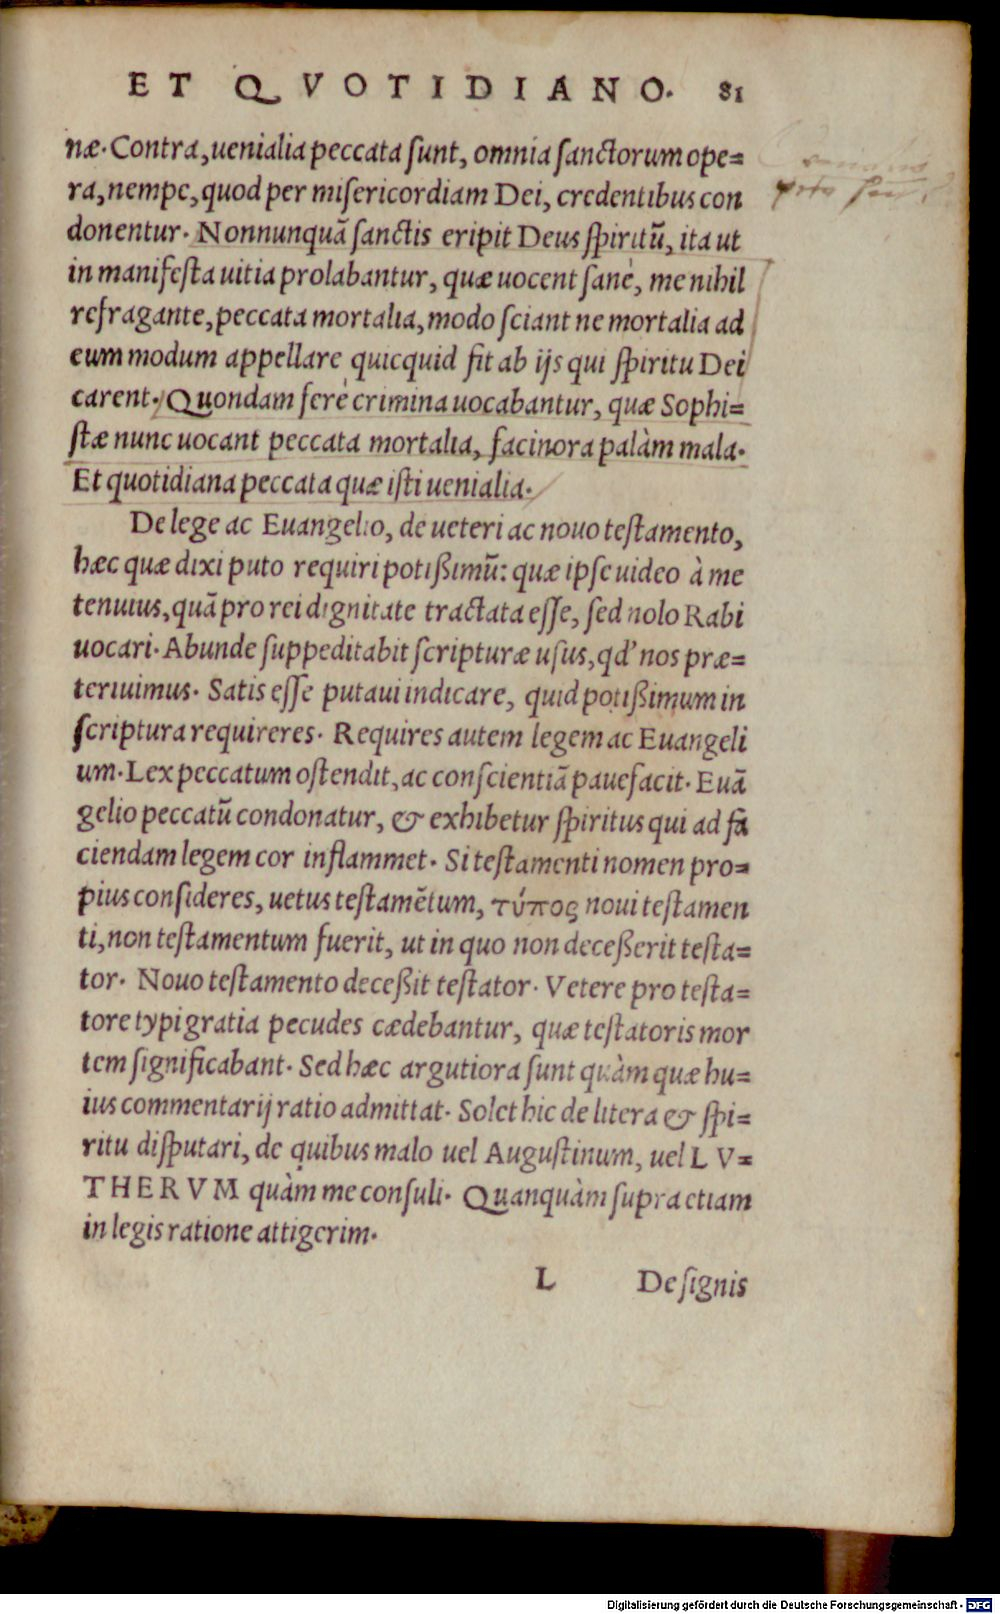 ET QVOTIDIANO. 81
næ. Contra, uenialia peccata ſunt, omnia ſanctorum ope=
ra, nempe, quod per miſericordiam Dei, credentibus con
donentur. Nonnunquā ſanctis eripit Deus ſpiritū, ita ut
in manifeſta uitia prolabantur, quæ uocent ſanè, me nihil
refragante, peccata mortalia, modo ſciant ne mortalia ad
eum modum appellare quicquid fit ab ijs qui ſpiritu Dei
carent. Quondam ferè crimina uocabantur, quæ Sophi=
ſtæ nunc uocant peccata mortalia, facinora palàm mala.
Et quotidiana peccata quæ iſti uenialia.
De lege ac Euangelio, de ueteri ac nouo teſtamento,
hæc quæ dixi puto requiri potißimū: quæ ipſe uideo à me
tenuius, quā pro rei dignitate tractata eſſe, ſed nolo Rabi
uocari. Abunde ſuppeditabit ſcripturæ uſus, qd' nos præ=
teriuimus. Satis eſſe putaui indicare, quid potißimum in
ſcriptura requireres. Requires autem legem ac Euangeli
um. Lex peccatum oſtendit, ac conſcientiā pauefacit. Euā
gelio peccatū condonatur, & exhibetur ſpiritus qui ad fa
ciendam legem cor inflammet. Si teſtamenti nomen pro=
pius conſideres, uetus teſtamētum, τύπος noui teſtamen
ti, non teſtamentum fuerit, ut in quo non deceßerit teſta=
tor. Nouo teſtamento deceßit teſtator. Vetere pro teſta=
tore typi gratia pecudes cædebantur, quæ teſtatoris mor
tem ſignificabant. Sed hæc argutiora ſunt quàm quæ hu=
ius commentarij ratio admittat. Solet hic de litera & ſpi=
ritu diſputari, de quibus malo uel Auguſtinum, uel LV=
THERVM quàm me conſuli. Quanquàm ſupra etiam
in legis ratione attigerim.
L Deſignis
Digitalisierung gefördert durch die Deutsche Forschungsgemeinschaft - DFG